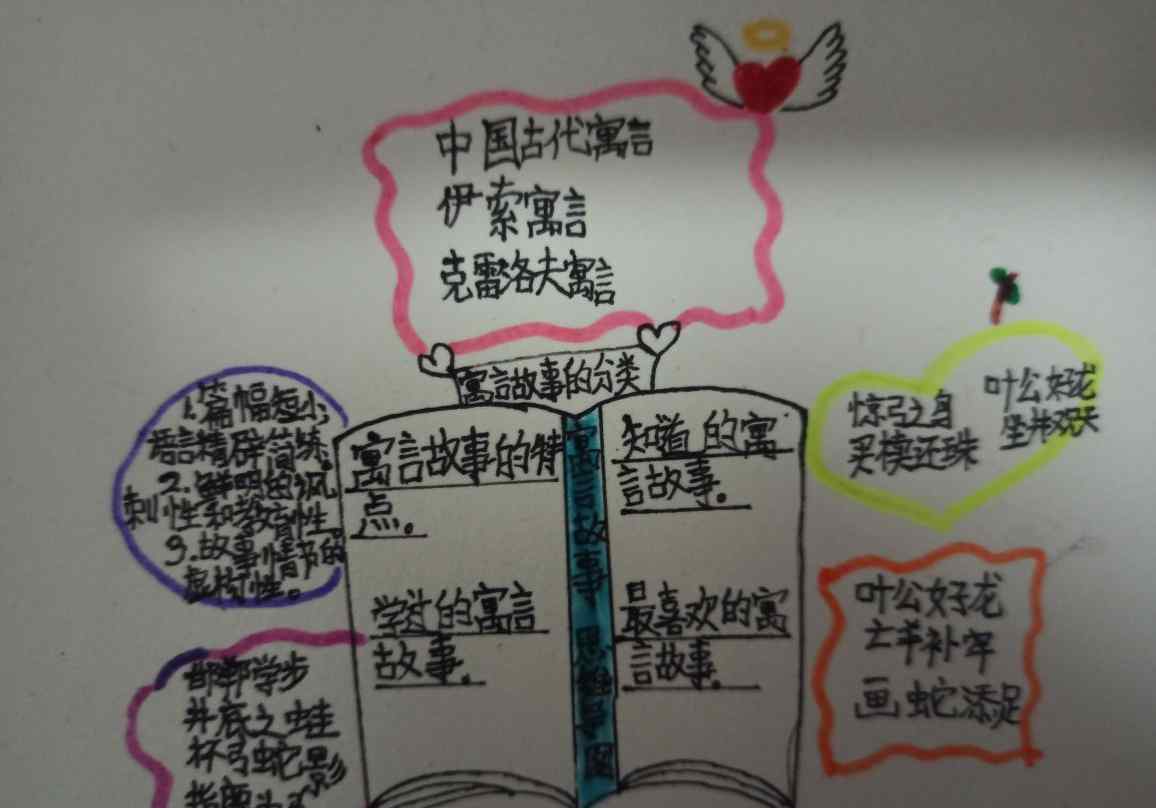 中国古代寓言
伊索寓言
克雷洛夫寓言
寓言故事的分类
1.篇幅短小;
语言精辟简练。
2.鲜明的讽
刺性和教育性。
3.故事情节的
虚构性。
寓言故事的特
点。
学过的寓言
故事。
寓言故事思维导图
知道的寓
言故事。
最喜欢的寓
言故事。
惊弓之鸟
买椟还珠
叶公好龙
坐井观天
叶公好龙
亡羊补牢
画蛇添足
邯郸学步
井底之蛙
杯弓蛇影
指鹿为